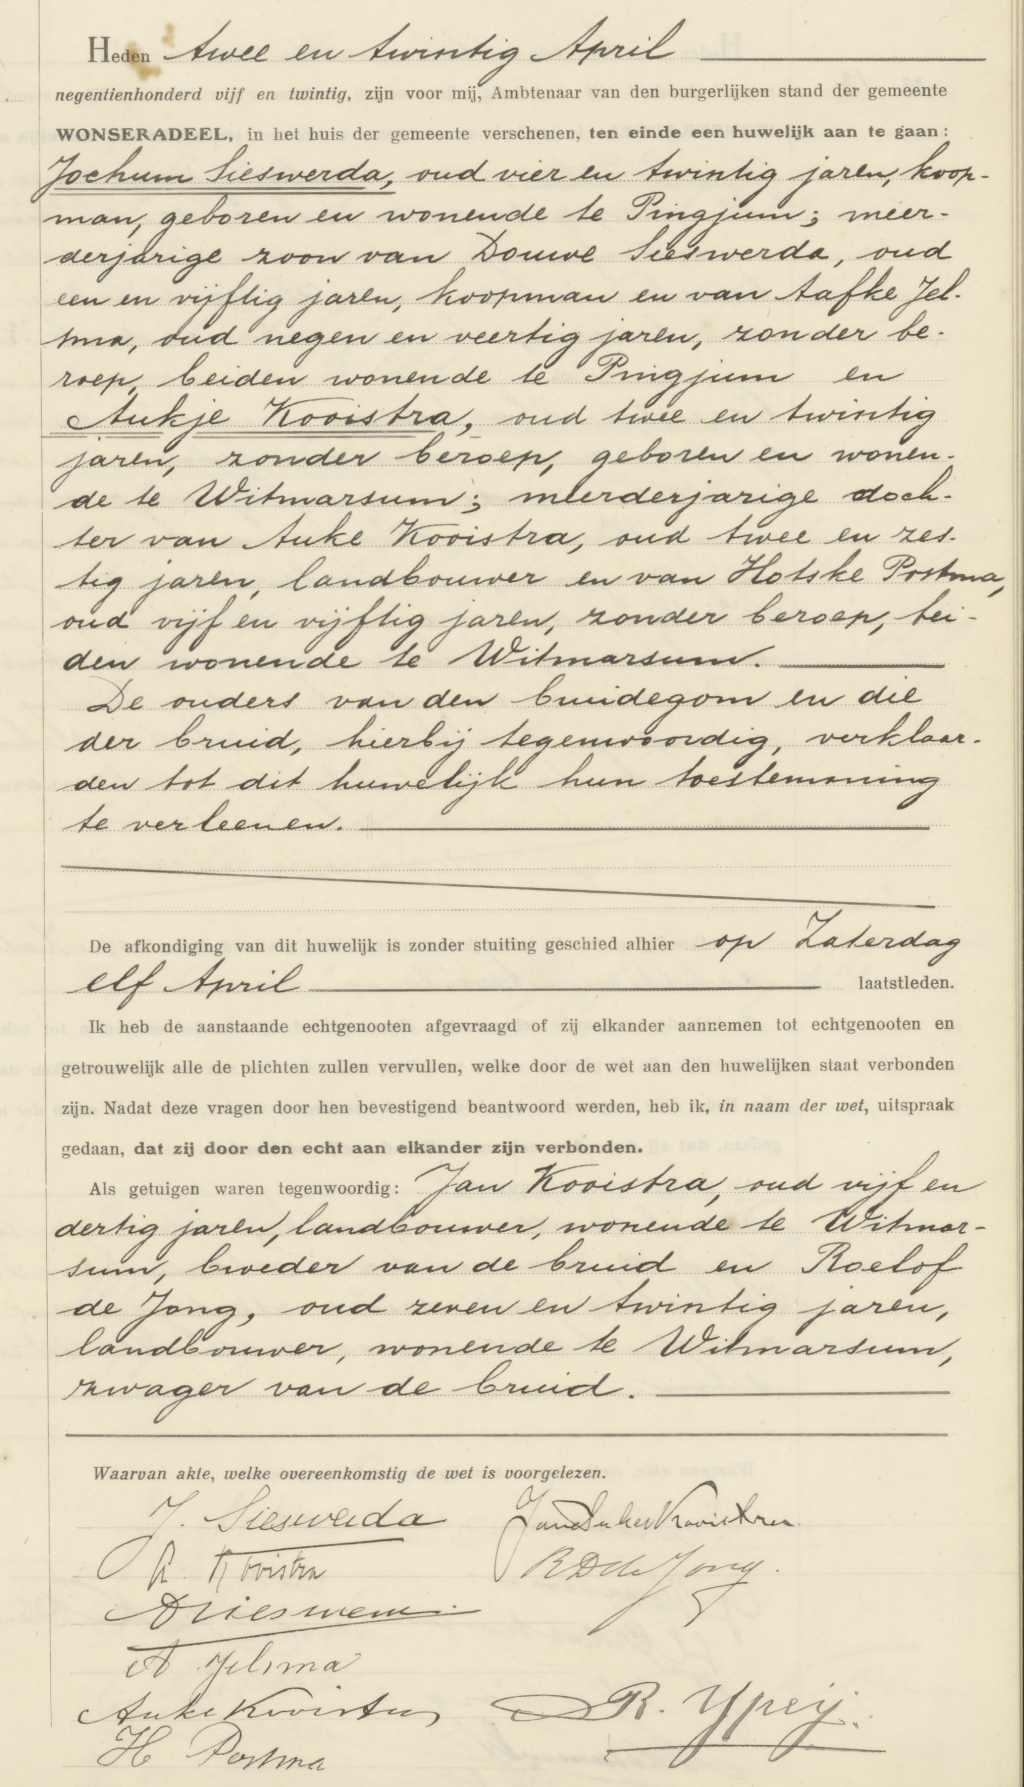 Heden twee en twintig April
negentienhonderd vijf en twintig, zijn voor mij, Ambtenaar van den burgerlijken stand der gemeente
WONSERADEEL, in het huis der gemeente verschenen, ten einde een huwelijk aan te gaan:
Jochum Sieswerda, oud vier en twintig jaren, koop-
man, geboren en wonende te Pingjum; meer-
derjarige zoon van Douwe Sieswerda, oud
een en vijftig jaren, koopman en van Aafke Jel-
sma, oud negen en veertig jaren, zonder be-
roep, beiden wonende te Pingjum en
Aukje Kooistra, oud twee en twintig
jaren, zonder beroep, geboren en wonen-
de te Witmarsum; meerderjarige doch-
ter van Auke Kooistra, oud twee en zes-
tig jaren, landbouwer en van Hotske Postma,
oud vijf en vijftig jaren, zonder beroep, bei-
den wonende te Witmarsum.
De ouders van den bruidegom en die
der bruid, hierbij tegenwoordig, verklaar-
den tot dit huwelijk hun toestemming
te verleenen.
De afkondiging van dit huwelijk is zonder stuiting geschied alhier op Zaterdag
elf April laatstleden.
Ik heb de aanstaande echtgenooten afgevraagd of zij elkander aannemen tot echtgenooten en
getrouwelijk alle de plichten zullen vervullen, welke door de wet aan den huwelijken staat verbonden
zijn. Nadat deze vragen door hen bevestigend beantwoord werden, heb ik, in naam der wet, uitspraak
gedaan, dat zij door den echt aan elkander zijn verbonden.
Als getuigen waren tegenwoordig: Jan Kooistra, oud vijf en
dertig jaren, landbouwer, wonende te Witmar-
sum, broeder van de bruid en Roelof
de Jong, oud zeven en twintig jaren,
landbouwer, wonende te Witmarsum,
zwager van de bruid.
Waarvan akte, welke overeenkomstig de wet is voorgelezen.
J. Sieswerda Jan Aukes Kooistra
A. Kooistra R D de Jong.
D Sieswerda
A Jelsma
Auke Kooistra R. Ypeij.
H Postma